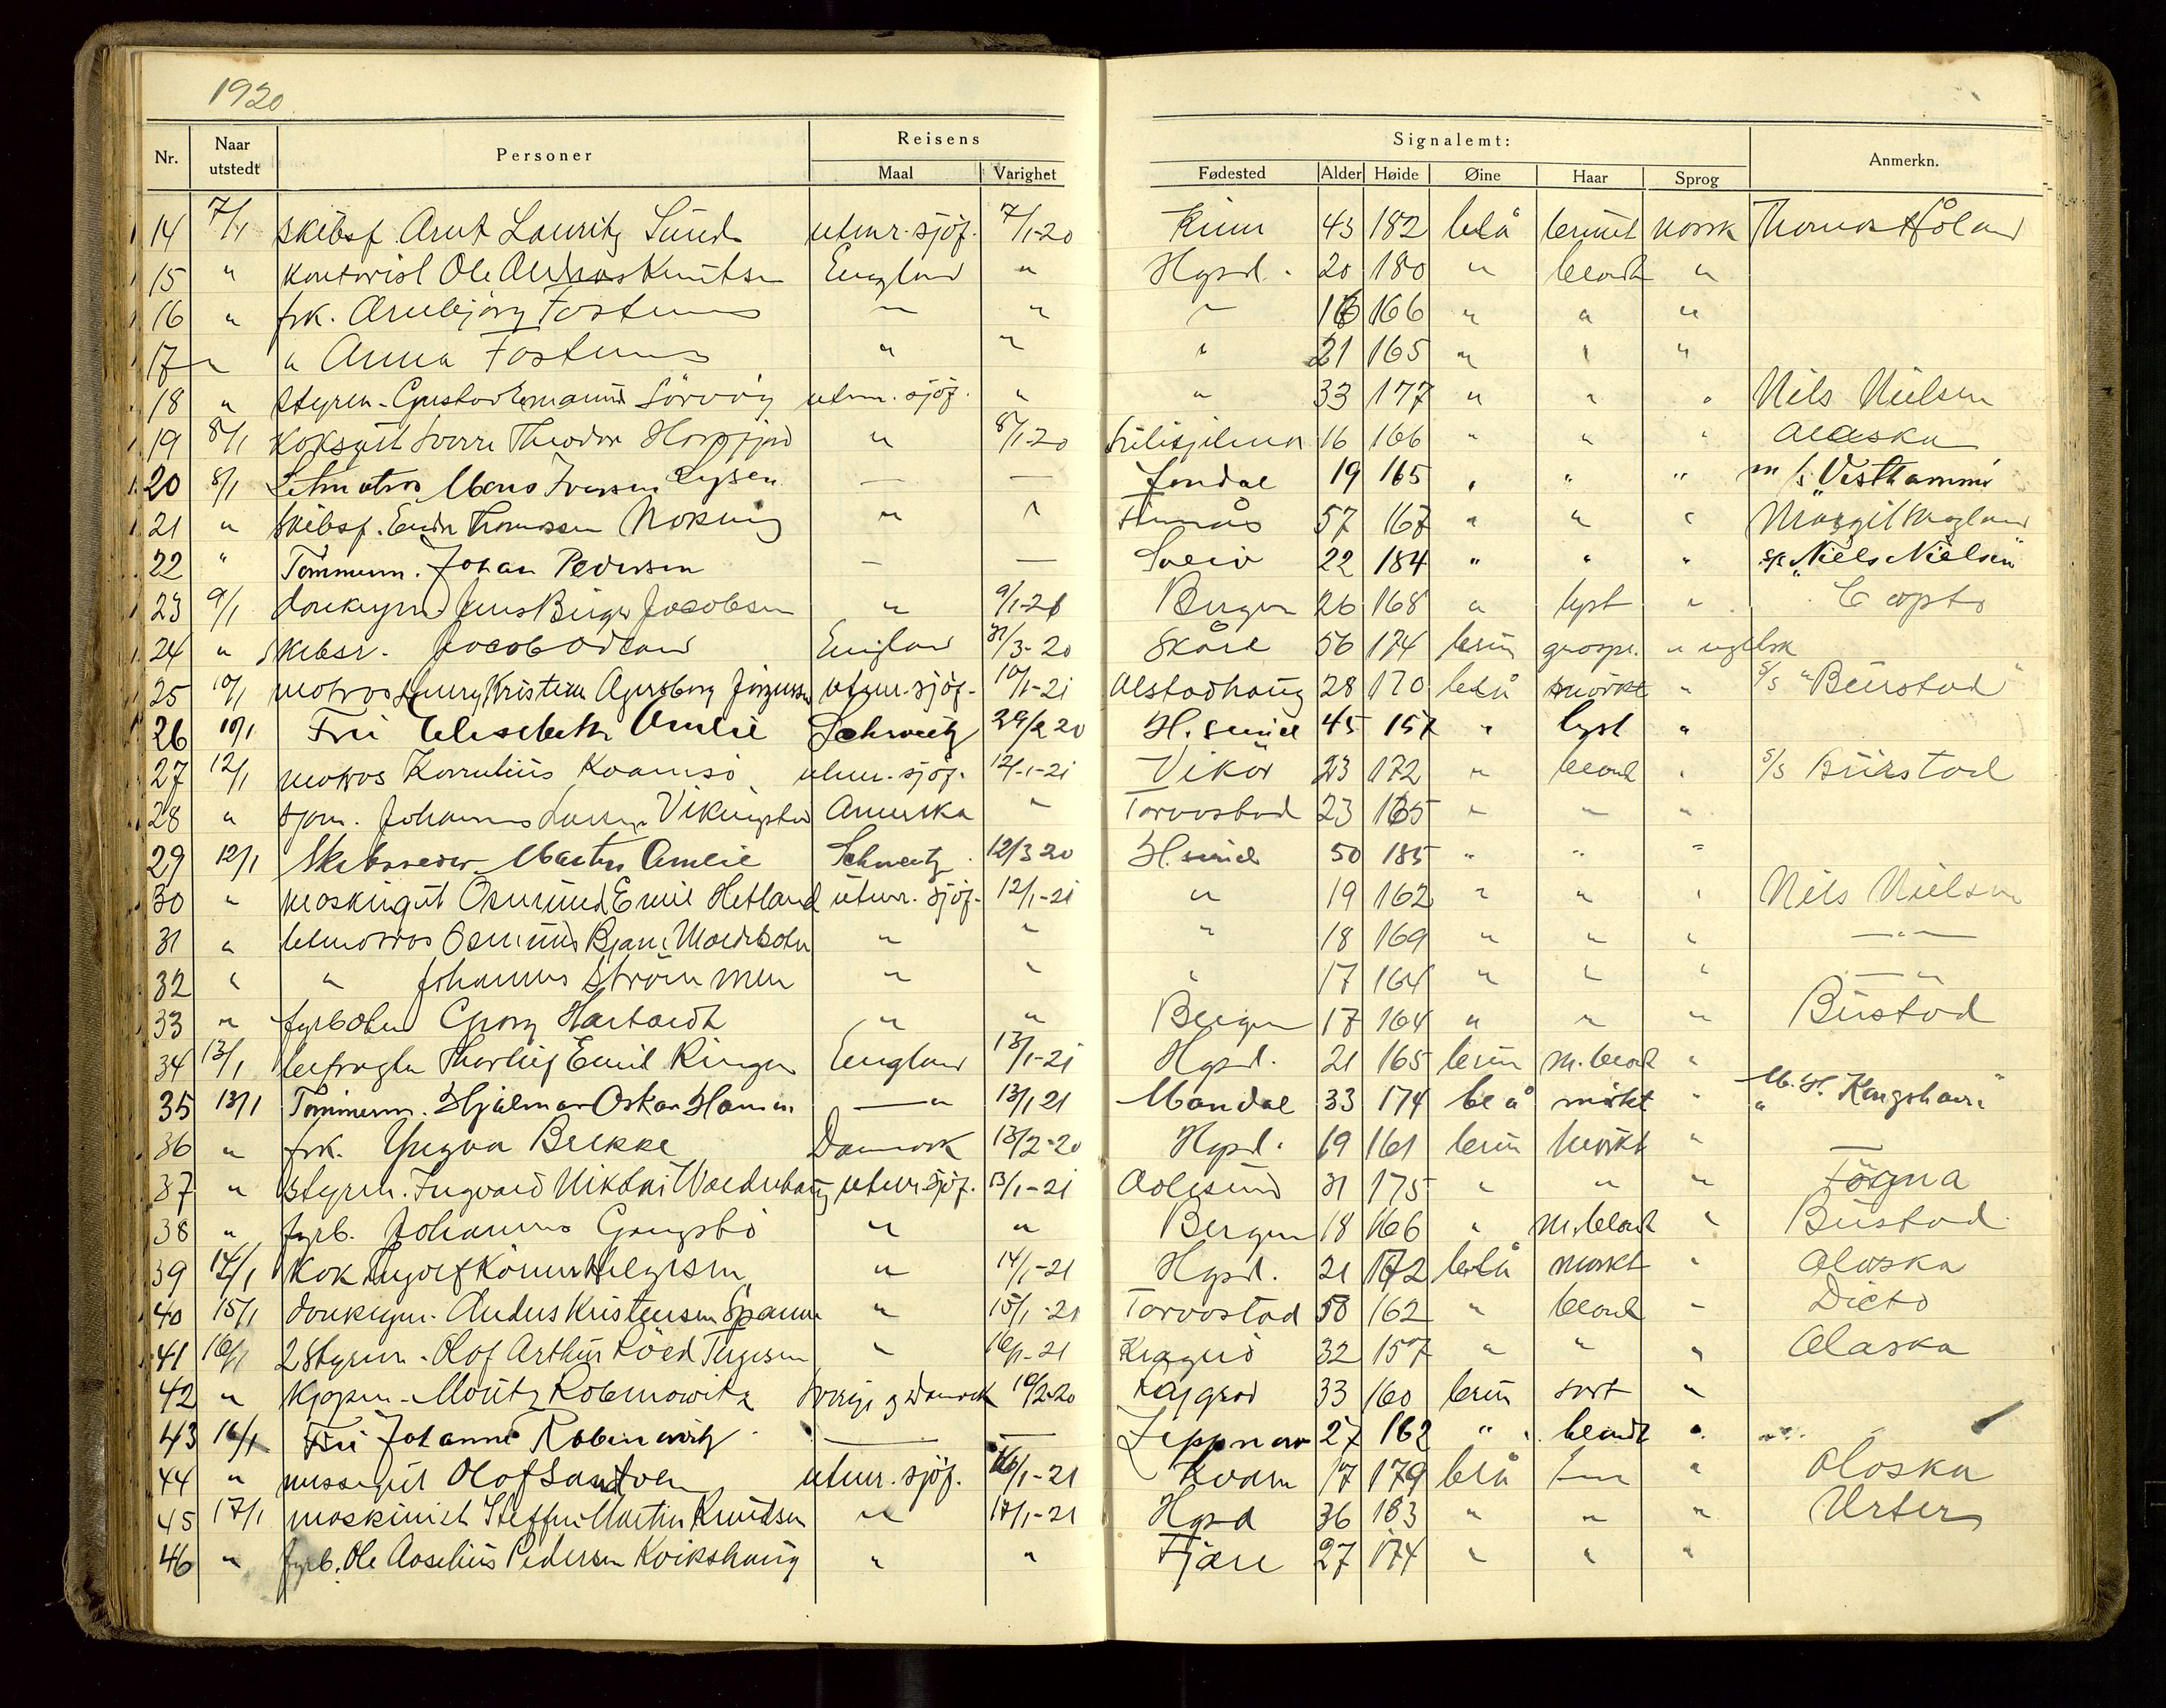 1920
Nr. Naar utstedt Personer Reisens Maal Varighet Signalemt: Fødested Alder Høide Øine Haar Sprog Anmerkn.
14 7/1 skibsf. Arnt Lauritz Sund utenr. sjöf. 7/1-20 Kinn 43 182 blå brunt norsk Thomas Haaland
15 " kontorist Ole Andreas Knutsen England " Hgsd. 20 180 " blondt "
16 " frk. Arnbjörg " " " 166 " " "
17 " " Anna " " " 21 165 " " "
18 " styrm. Gustav Sörvåg utenr. sjöf. " " 33 177 " " " Nils Nielsen
19 8/1 Koksgut Sverre Theodor " 8/1-20 16 166 " " " Alaska
20 8/1 Letmatros Mons Iversen — — Jondal 19 165 " " " m/s "Vesthammer"
21 " skibsf. Endre Thomassen " " 57 167 " " " Margit
22 " Tömmerm. Johan Pedersen — — Sveio 22 184 " " " s/s "Niels Nielsen"
23 9/1 donkeym. Jens Birger Jacobsen " 9/1-21 Bergen 26 168 " lyst "
24 " skibsr. Jacob Odland England 31/3-20 Skåre 56 174 brun " engelsk
25 10/1 matros Kristian Agersborg Jörgensen utenr. sjöf. 10/1-21 Alstadhaug 28 170 blå mörkt " S/S "Burstad"
26 10/1 Fru Elisabeth Amlie Schweitz 29/2 20 H.sund 45 157 " lyst "
27 12/1 matros Kornelius Kvamsö utenr. sjöf. 12/1-21 Vikör 23 172 " blond " S/S Burstad
28 " sjöm. Johannes Vikingstad Amerika " Torvastad 23 165 " " "
29 12/1 Skibsreder Martin Amlie Schweitz 12/3 20 H.sund 50 185 " " "
30 " maskingut Osmund Emil Hetland utenr. sjöf. 12/1-21 " 19 162 " " " Nils Nielsen
31 " letmatros Osmund Bjarne " " " 18 169 " " " —"—
32 " " Johannes Strömmen " " " 17 164 " " " —"
33 " fyrböter Georg Hartardt " " Bergen 17 164 " " " Burstad
34 13/1 befragter Thorleif Emil Ringen England 13/1-21 Hgsd. 21 165 brun m.blond "
35 13/1 Tömmerm. Hjalmar Oskar Hansen —"— 13/1 21 Mandal 33 174 blå mörkt " M.S. "Kongshavn"
36 " frk. Yngva Bekke Danmark 13/2-20 Hgsd. 19 161 brun mörkt "
37 " styrm. Ingvald Nikolai utenr. sjöf. 13/1-21 Aalesund 31 175 " " " Tögna
38 " fyrb. Johannes Gangsbö " " Bergen 18 166 " m.blond " Burstad
39 14/1 Kok Ingolf Helgesen " 14/1-21 Hgsd. 21 172 blå mörkt " Alaska
40 15/1 donkeym. Anders Kristensen Spanne " 15/1-21 Torvastad 50 162 " blond " Dicto
41 16/1 2 styrm. Olaf Arthur Röed Tergesen " 16/1-21 Kragerö 32 157 " " " Alaska
42 " Kjöpm. Moritz Rabinowitz Sverige og Danmark 16/2-20 Rajgrod 33 160 brun sort "
43 16/1 Fru Johanne Rabinowitz — — 27 162 " blondt "
44 " messegut Olaf Sandven utenr. sjöf. 16/1-21 Kvam 17 179 blå " Alaska
45 17/1 maskinist Steffen Martin Knudsen " 17/1-21 Hgsd 36 183 " " " Urter
46 " fyrb. Ole Aoselius Pedersen Kvikshaug " " Tjære 27 174 " " "